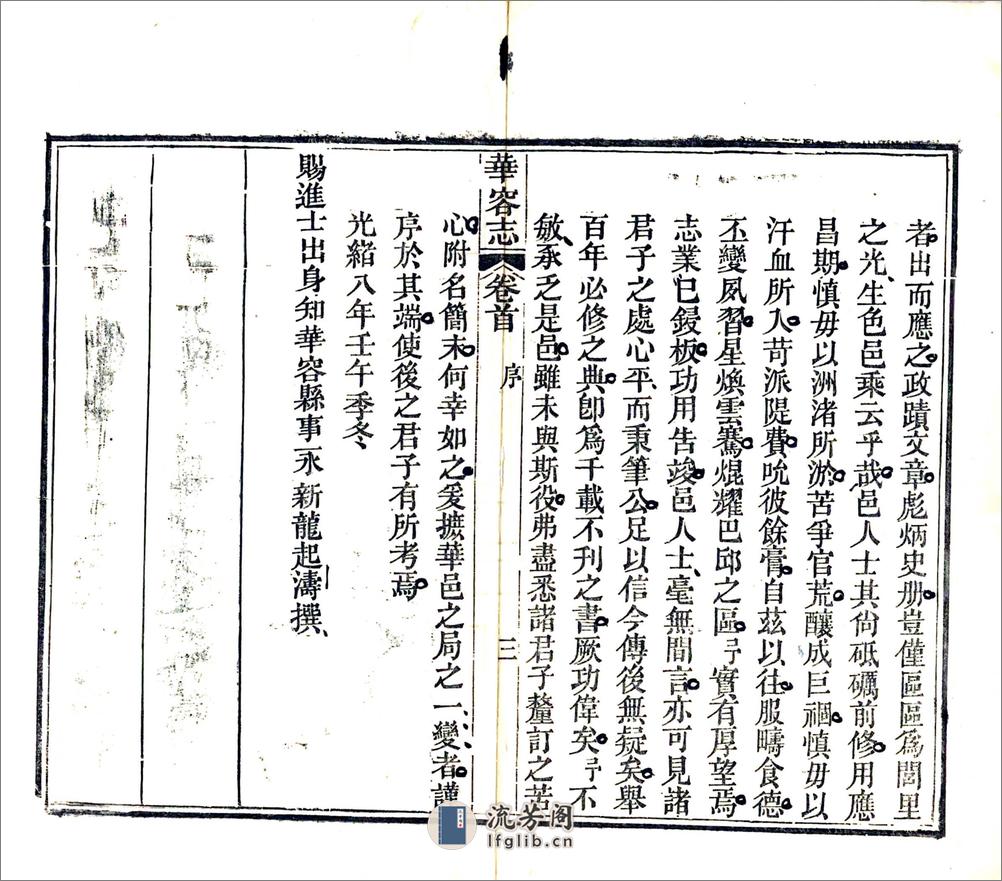 者出而應之政蹟文章彪炳史册豈僅區區爲閭里
之光生色邑乘云乎哉邑人士其尙砥礪前修用應
昌期愼毋以洲渚所淤苦爭官荒釀成巨禍愼毋以
汗血所入苛派隄費吮彼餘膏自茲以往服疇食德
丕變風習星煥雲騫焜耀巴邱之區予實有厚望焉
志業已鋟板功用告竣邑人士毫無間言亦可見諸
君子之處心平而秉筆公足以信今傳後無疑矣舉
百年必修之典卽爲千載不刊之書厥功偉矣予不
敏承乏是邑雖未與斯役弗盡悉諸君子釐訂之苦
華容志 卷首 序 三
心附名簡末何幸如之爰摭華邑之局之一變者謹
序於其端使後之君子有所考焉
光緒八年壬午季冬
賜進士出身知華容縣事永新龍起濤撰
流芳阁
lfglib.cn